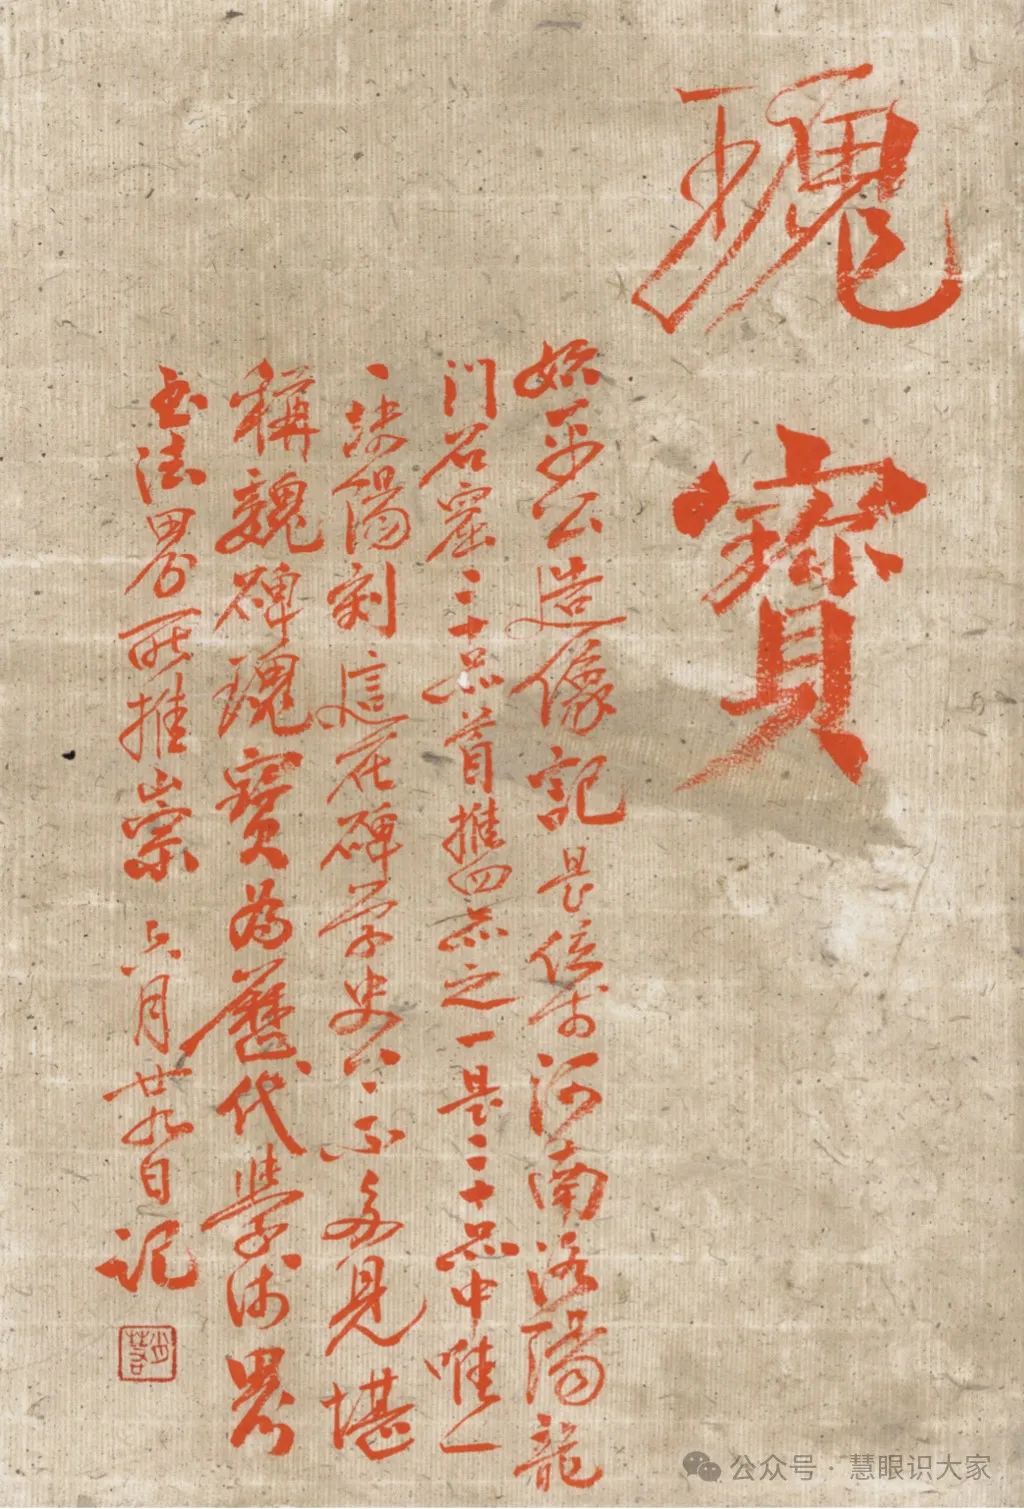 瑰寶
始平公造像記是位於河南洛陽龍
门石窟二十品首推四品之一是二十品中唯一
一块陽刻這在碑学史上不多見堪
稱魏碑瑰寶為歷代學術界
书法界所推崇 六月廿九日记
公众号 · 慧眼识大家